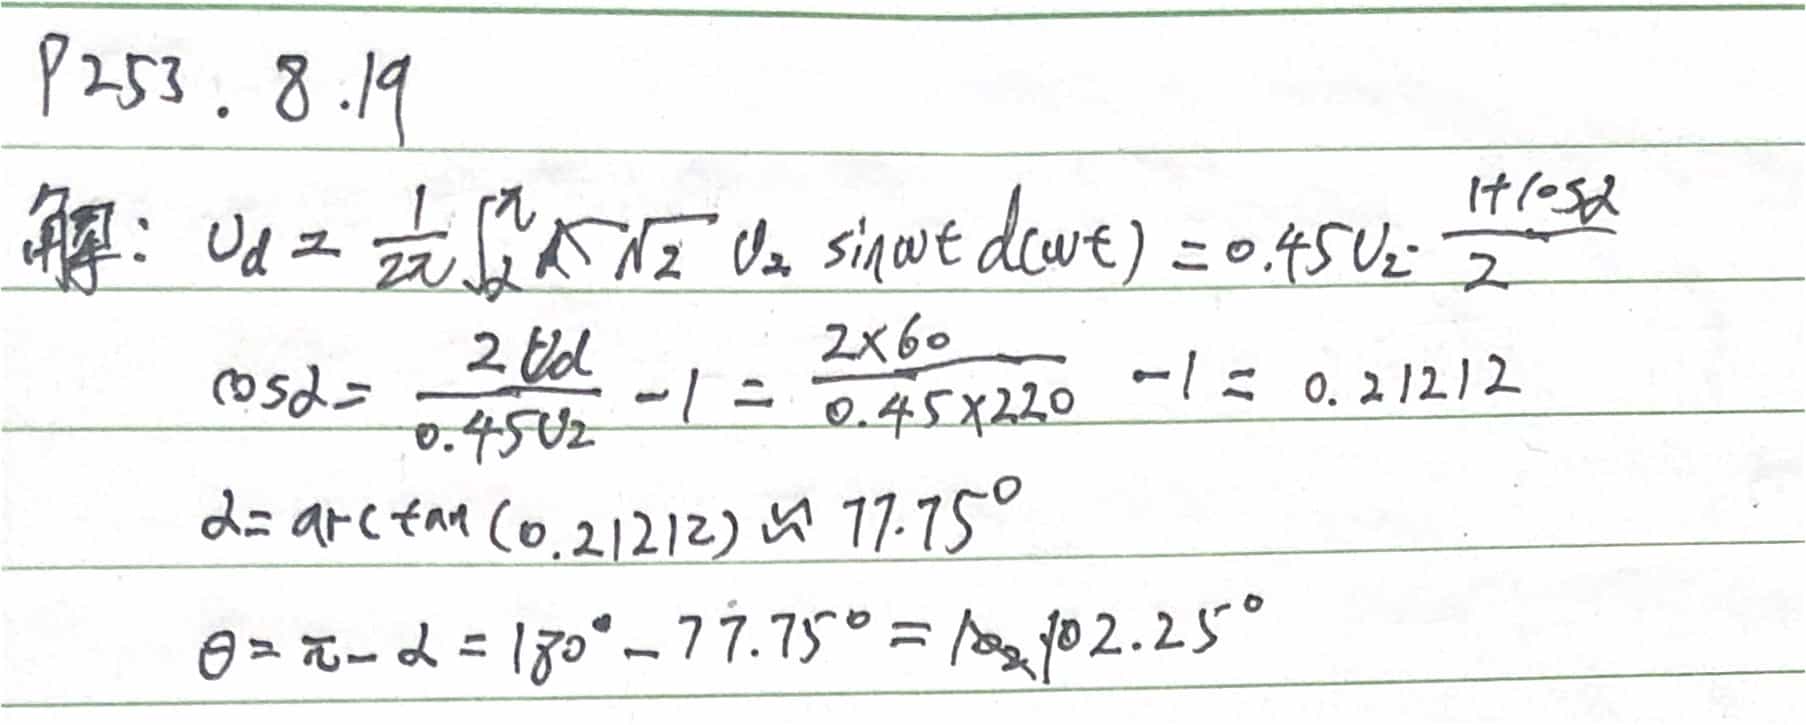 P253. 8.19
解: Ud = 1/2π ∫_α^π √2 U₂ sinωt d(ωt) = 0.45U₂· (1+cosα)/2
cosα = 2Ud/0.45U₂ - 1 = 2×60/0.45×220 - 1 = 0.21212
α = arctan (0.21212) ≈ 77.75°
θ = π - α = 180° - 77.75° = 102.25°